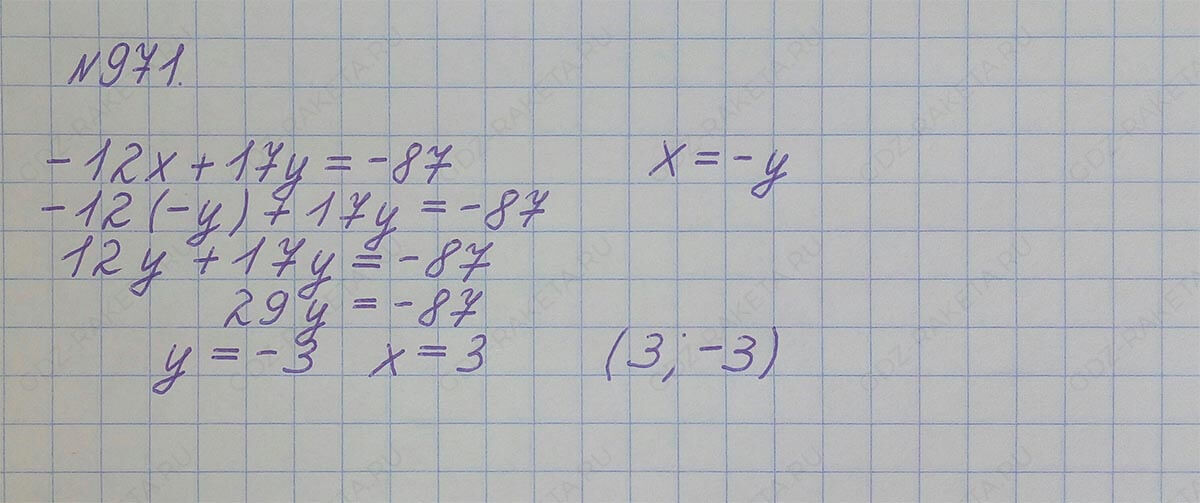 №971.
-12x + 17y = -87 x = -y
-12(-y) + 17y = -87
12y + 17y = -87
29y = -87
y = -3 x = 3 (3; -3)
GDZ-RAKETA.RU